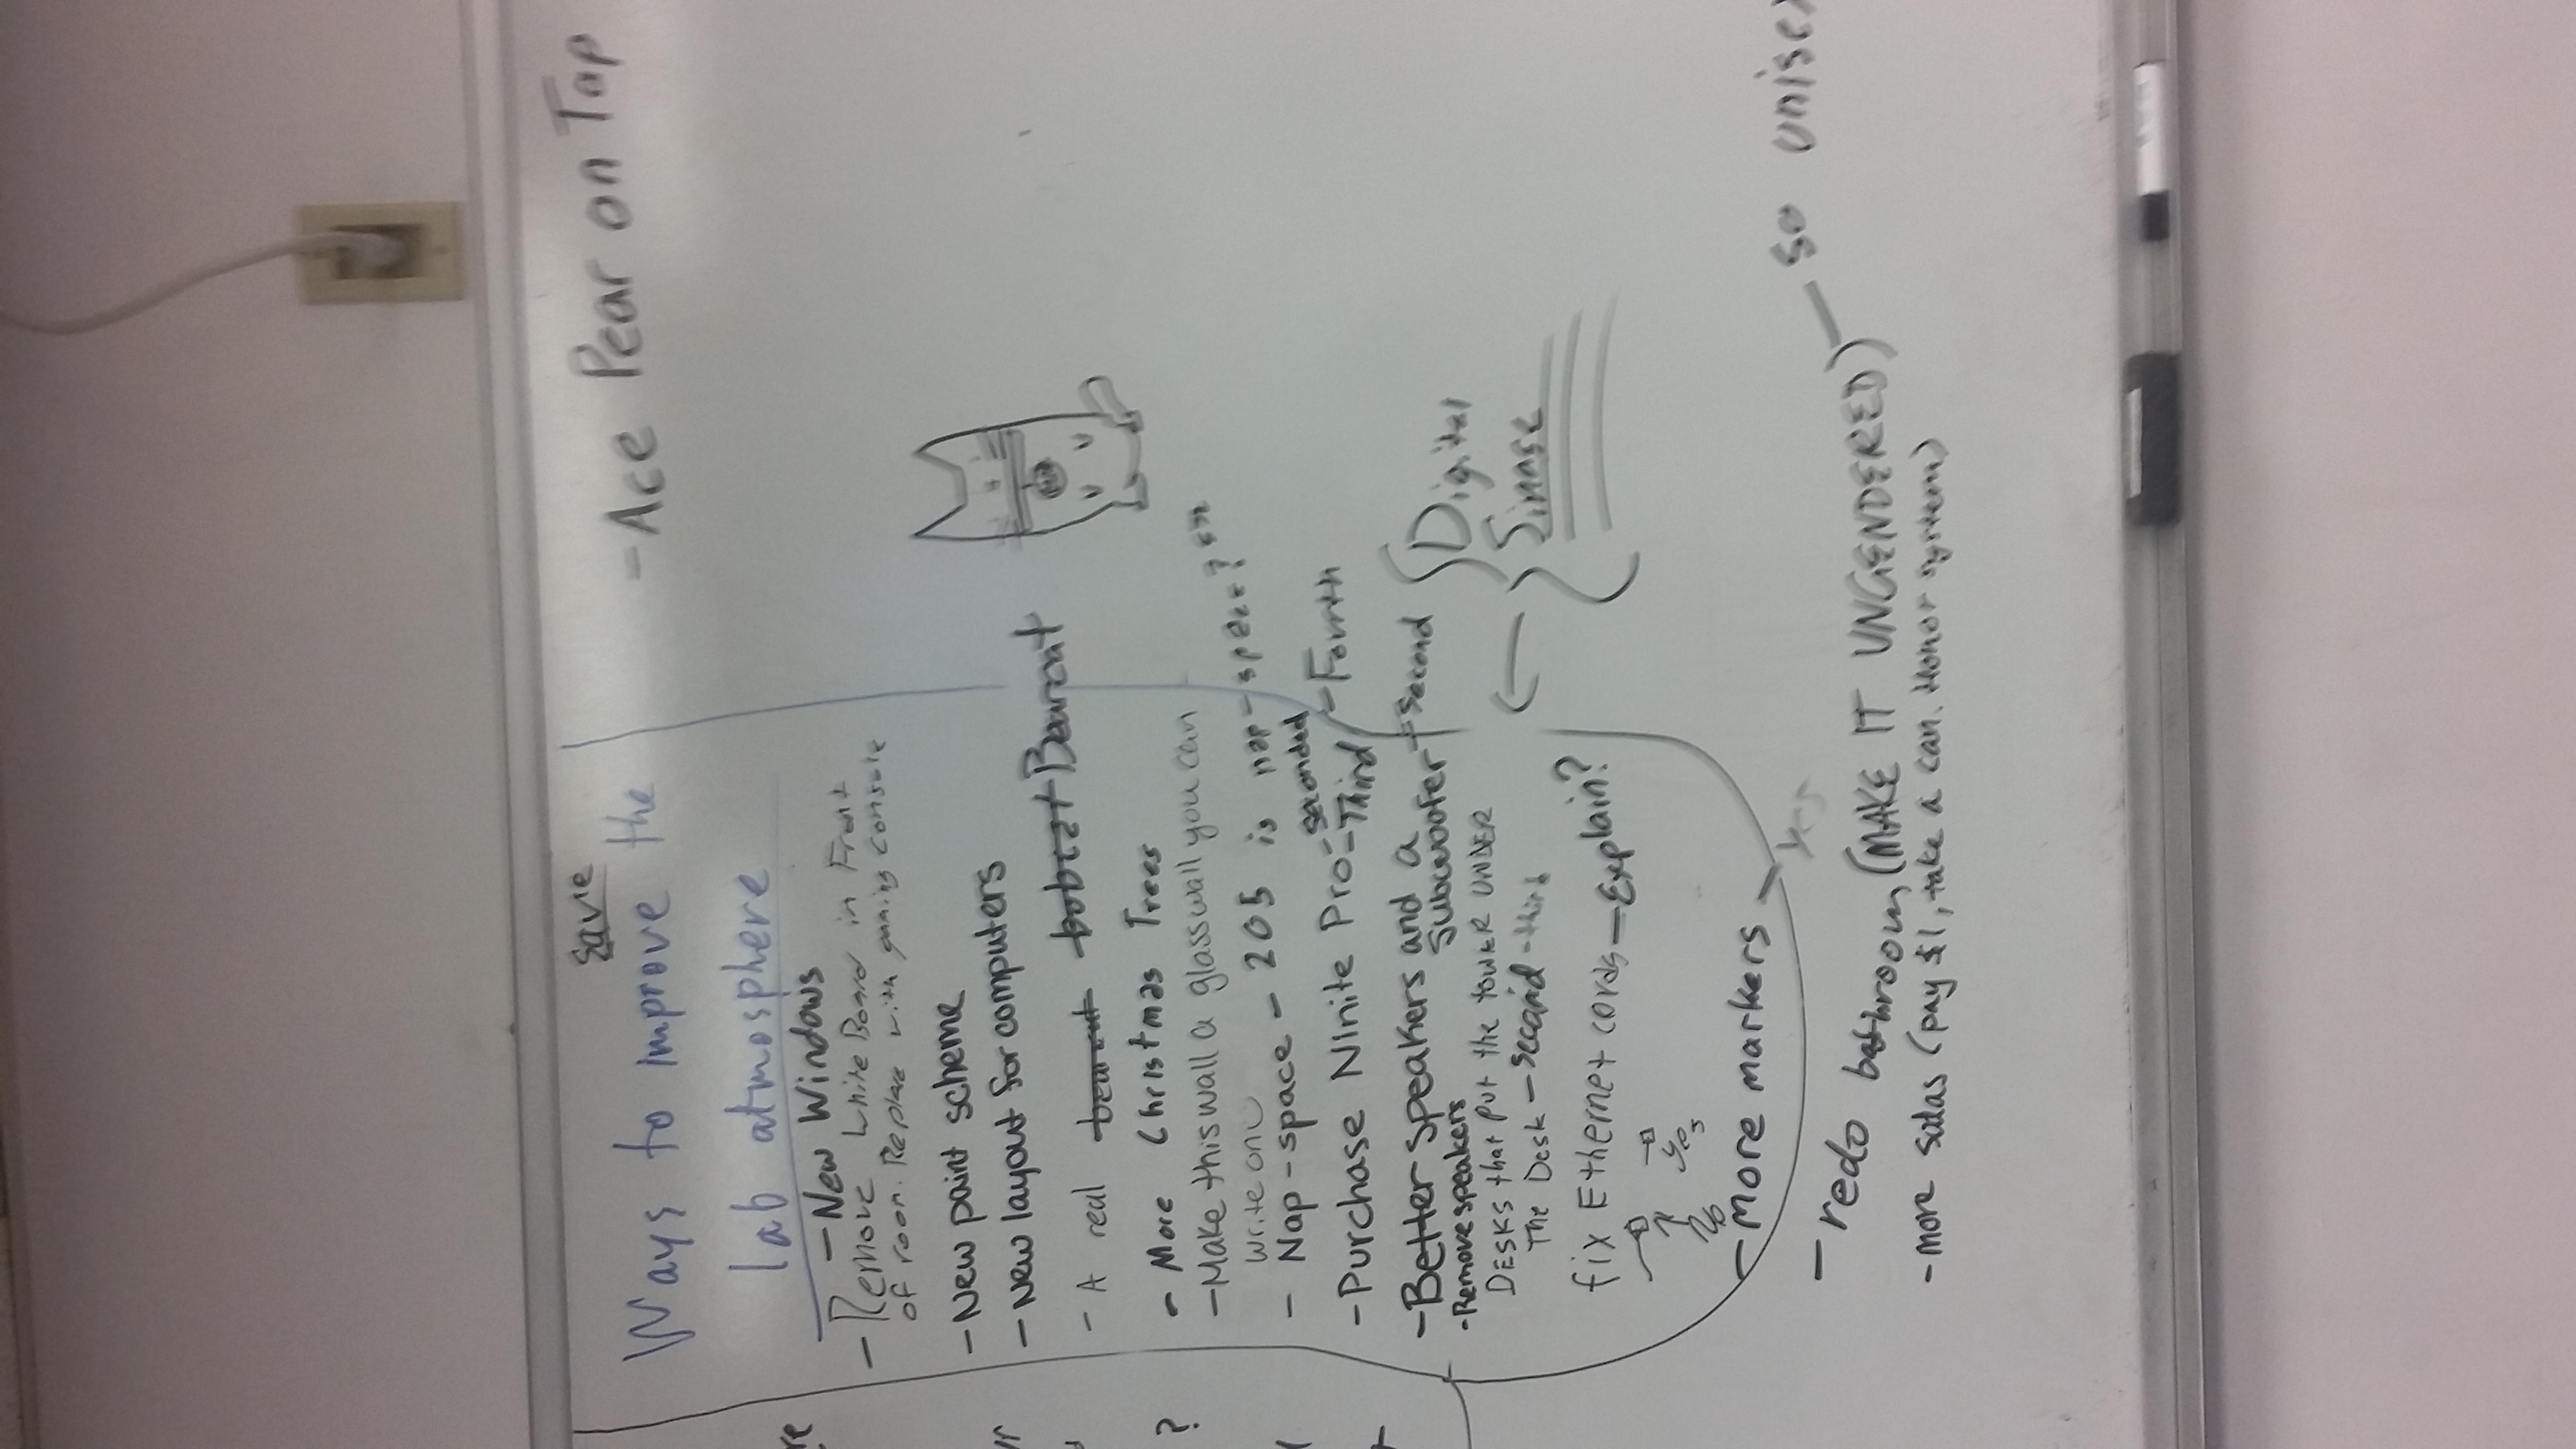 Save
Ways to improve the
lab atmosphere
- New Windows
- Remove White Board in Front
of room. Replace with gaming console
- New paint scheme
- New layout for computers
- A real bearcat bobcat Bearcat
- More Christmas Trees
- Make this wall a glass wall you can
write on
- Nap-space - 205 is nap-space?
- Purchase Ninite Pro - seconded
- Third - Fourth
- Better speakers and a
subwoofer - second
- Remove speakers
DESKS that put the tower UNDER
The Desk - second - third
fix Ethernet cords - Explain?
No
yes
- more markers - yes
- redo bathroom (MAKE IT UNGENDERED) - so unisex
- more sodas (pay $1, take a can. Honor system)
- Ace Pear on Tap
Digital
Sinage
re
?